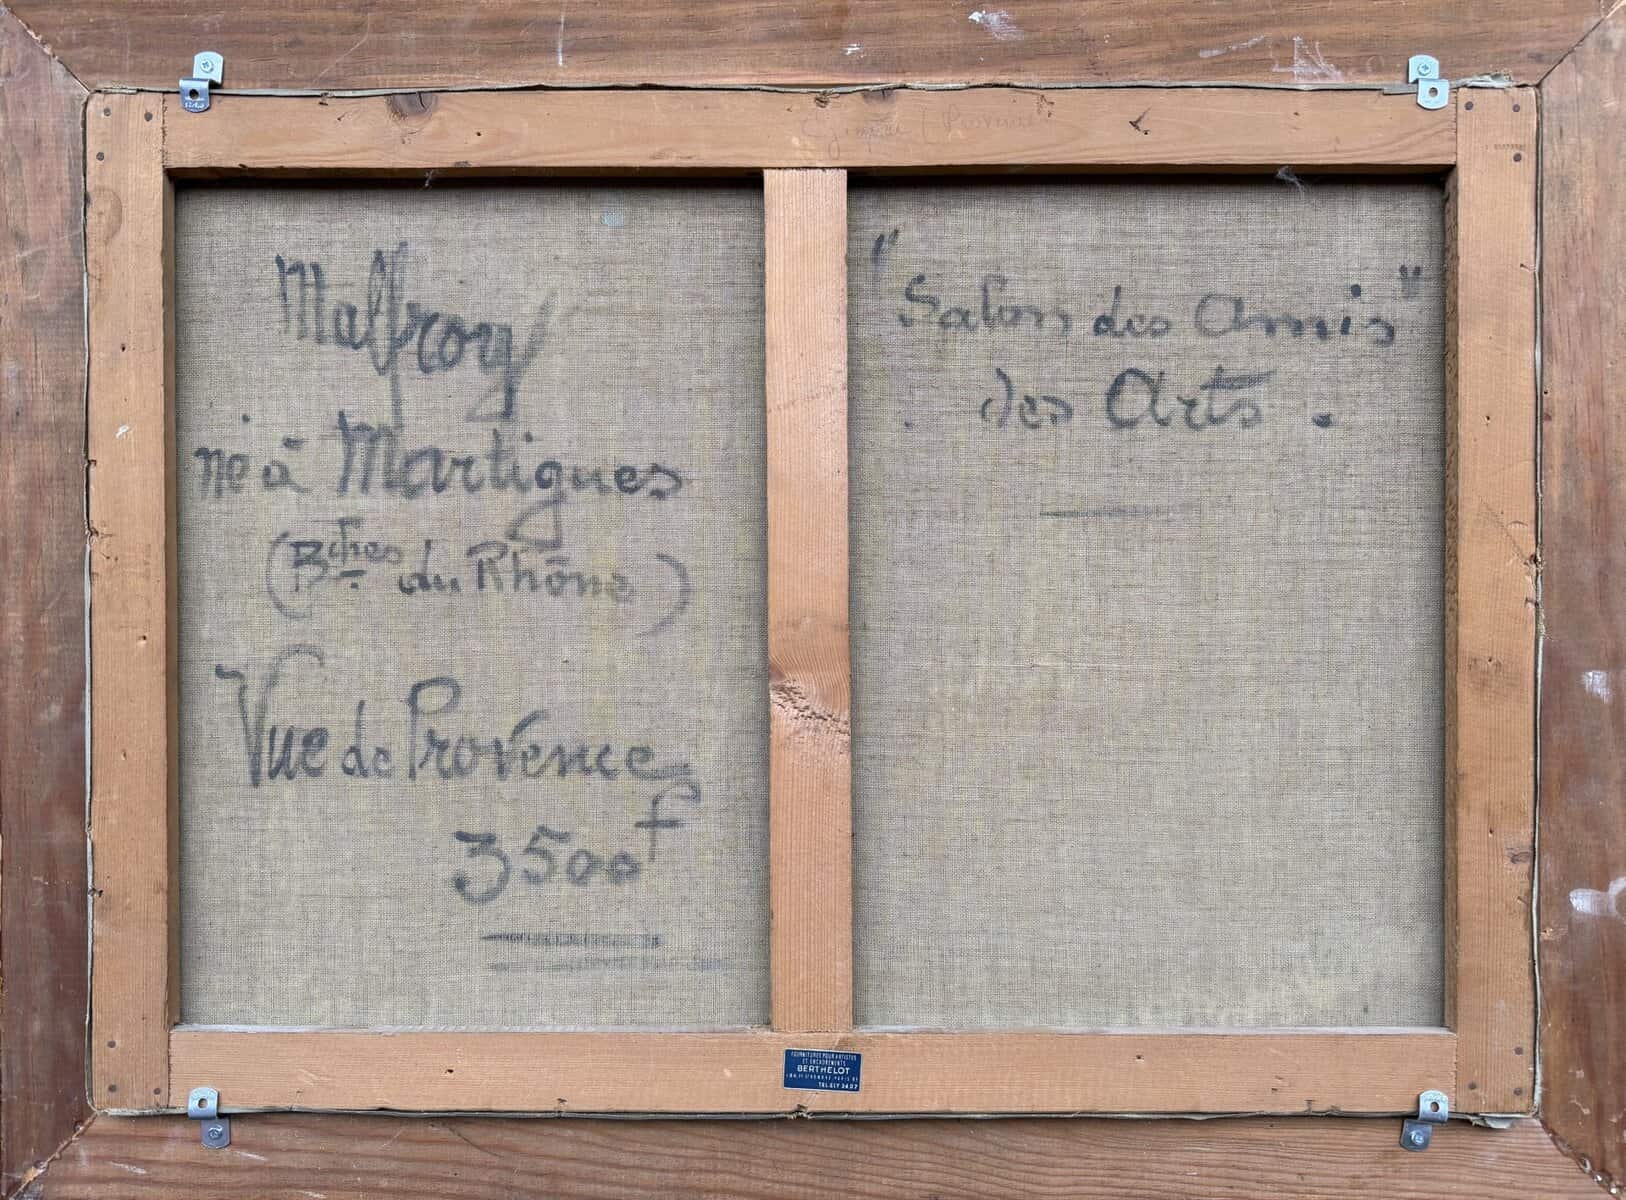 Malfroy
né à Martigues
(Bches du Rhône)
Vue de Provence
3500f
"Salon des Amis"
des Arts.
FOURNITURES POUR ARTISTES
ET ENCADREMENTS
BERTHELOT
TEL. ELY 34.07